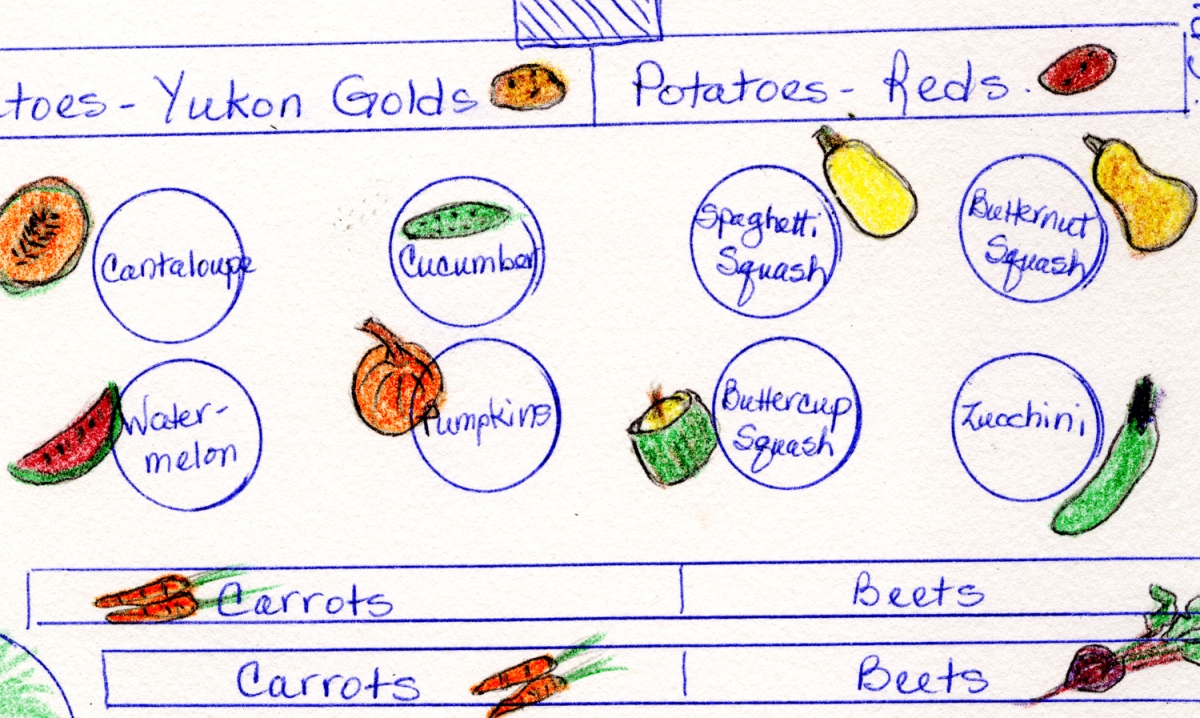 toes - Yukon Golds
Potatoes - Reds.
Cantaloupe
Cucumber
Spaghetti
Squash
Butternut
Squash
Water-
melon
Pumpkins
Buttercup
Squash
Zucchini
Carrots
Beets
Carrots
Beets